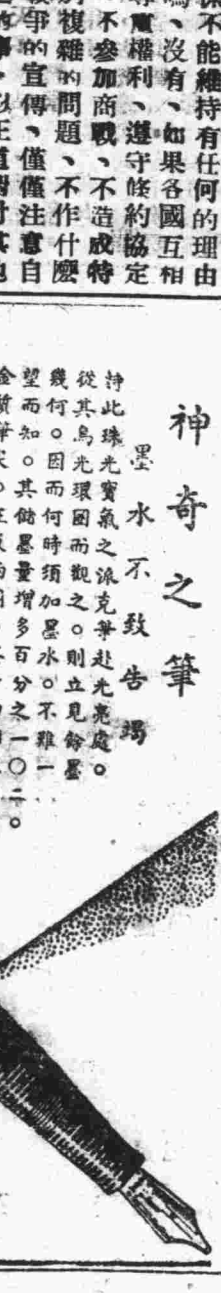 不能維持有任何的理由
嗎、沒有、如果各國互相
尊重權利、遵守條約協定
不參加商戰、不造成特
別複雜的問題、不作什麼
戰爭的宣傳、僅僅注意自
神奇之筆
墨水不致告竭
持此珠光寶氣之派克筆赴光亮處。
從其烏光環圈而觀之。則立見餘墨
幾何。因而何時須加墨水。不難一
望而知。其儲墨量增多百分之一〇二。
金質筆尖